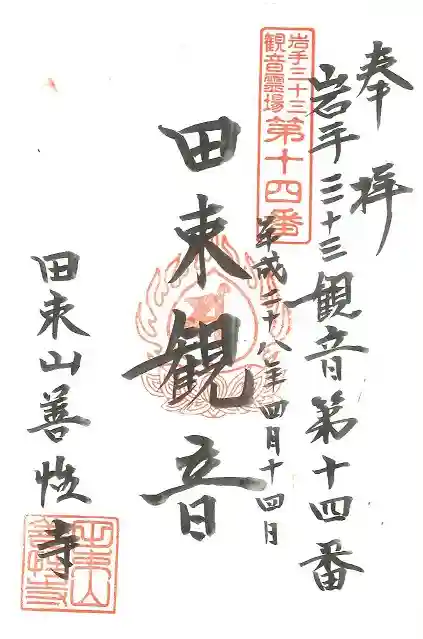 奉拝
岩手三十三観音第十四番
岩手三十三
観音霊場
第十四番
平成二十八年四月十四日
田束観音
田束山善性寺